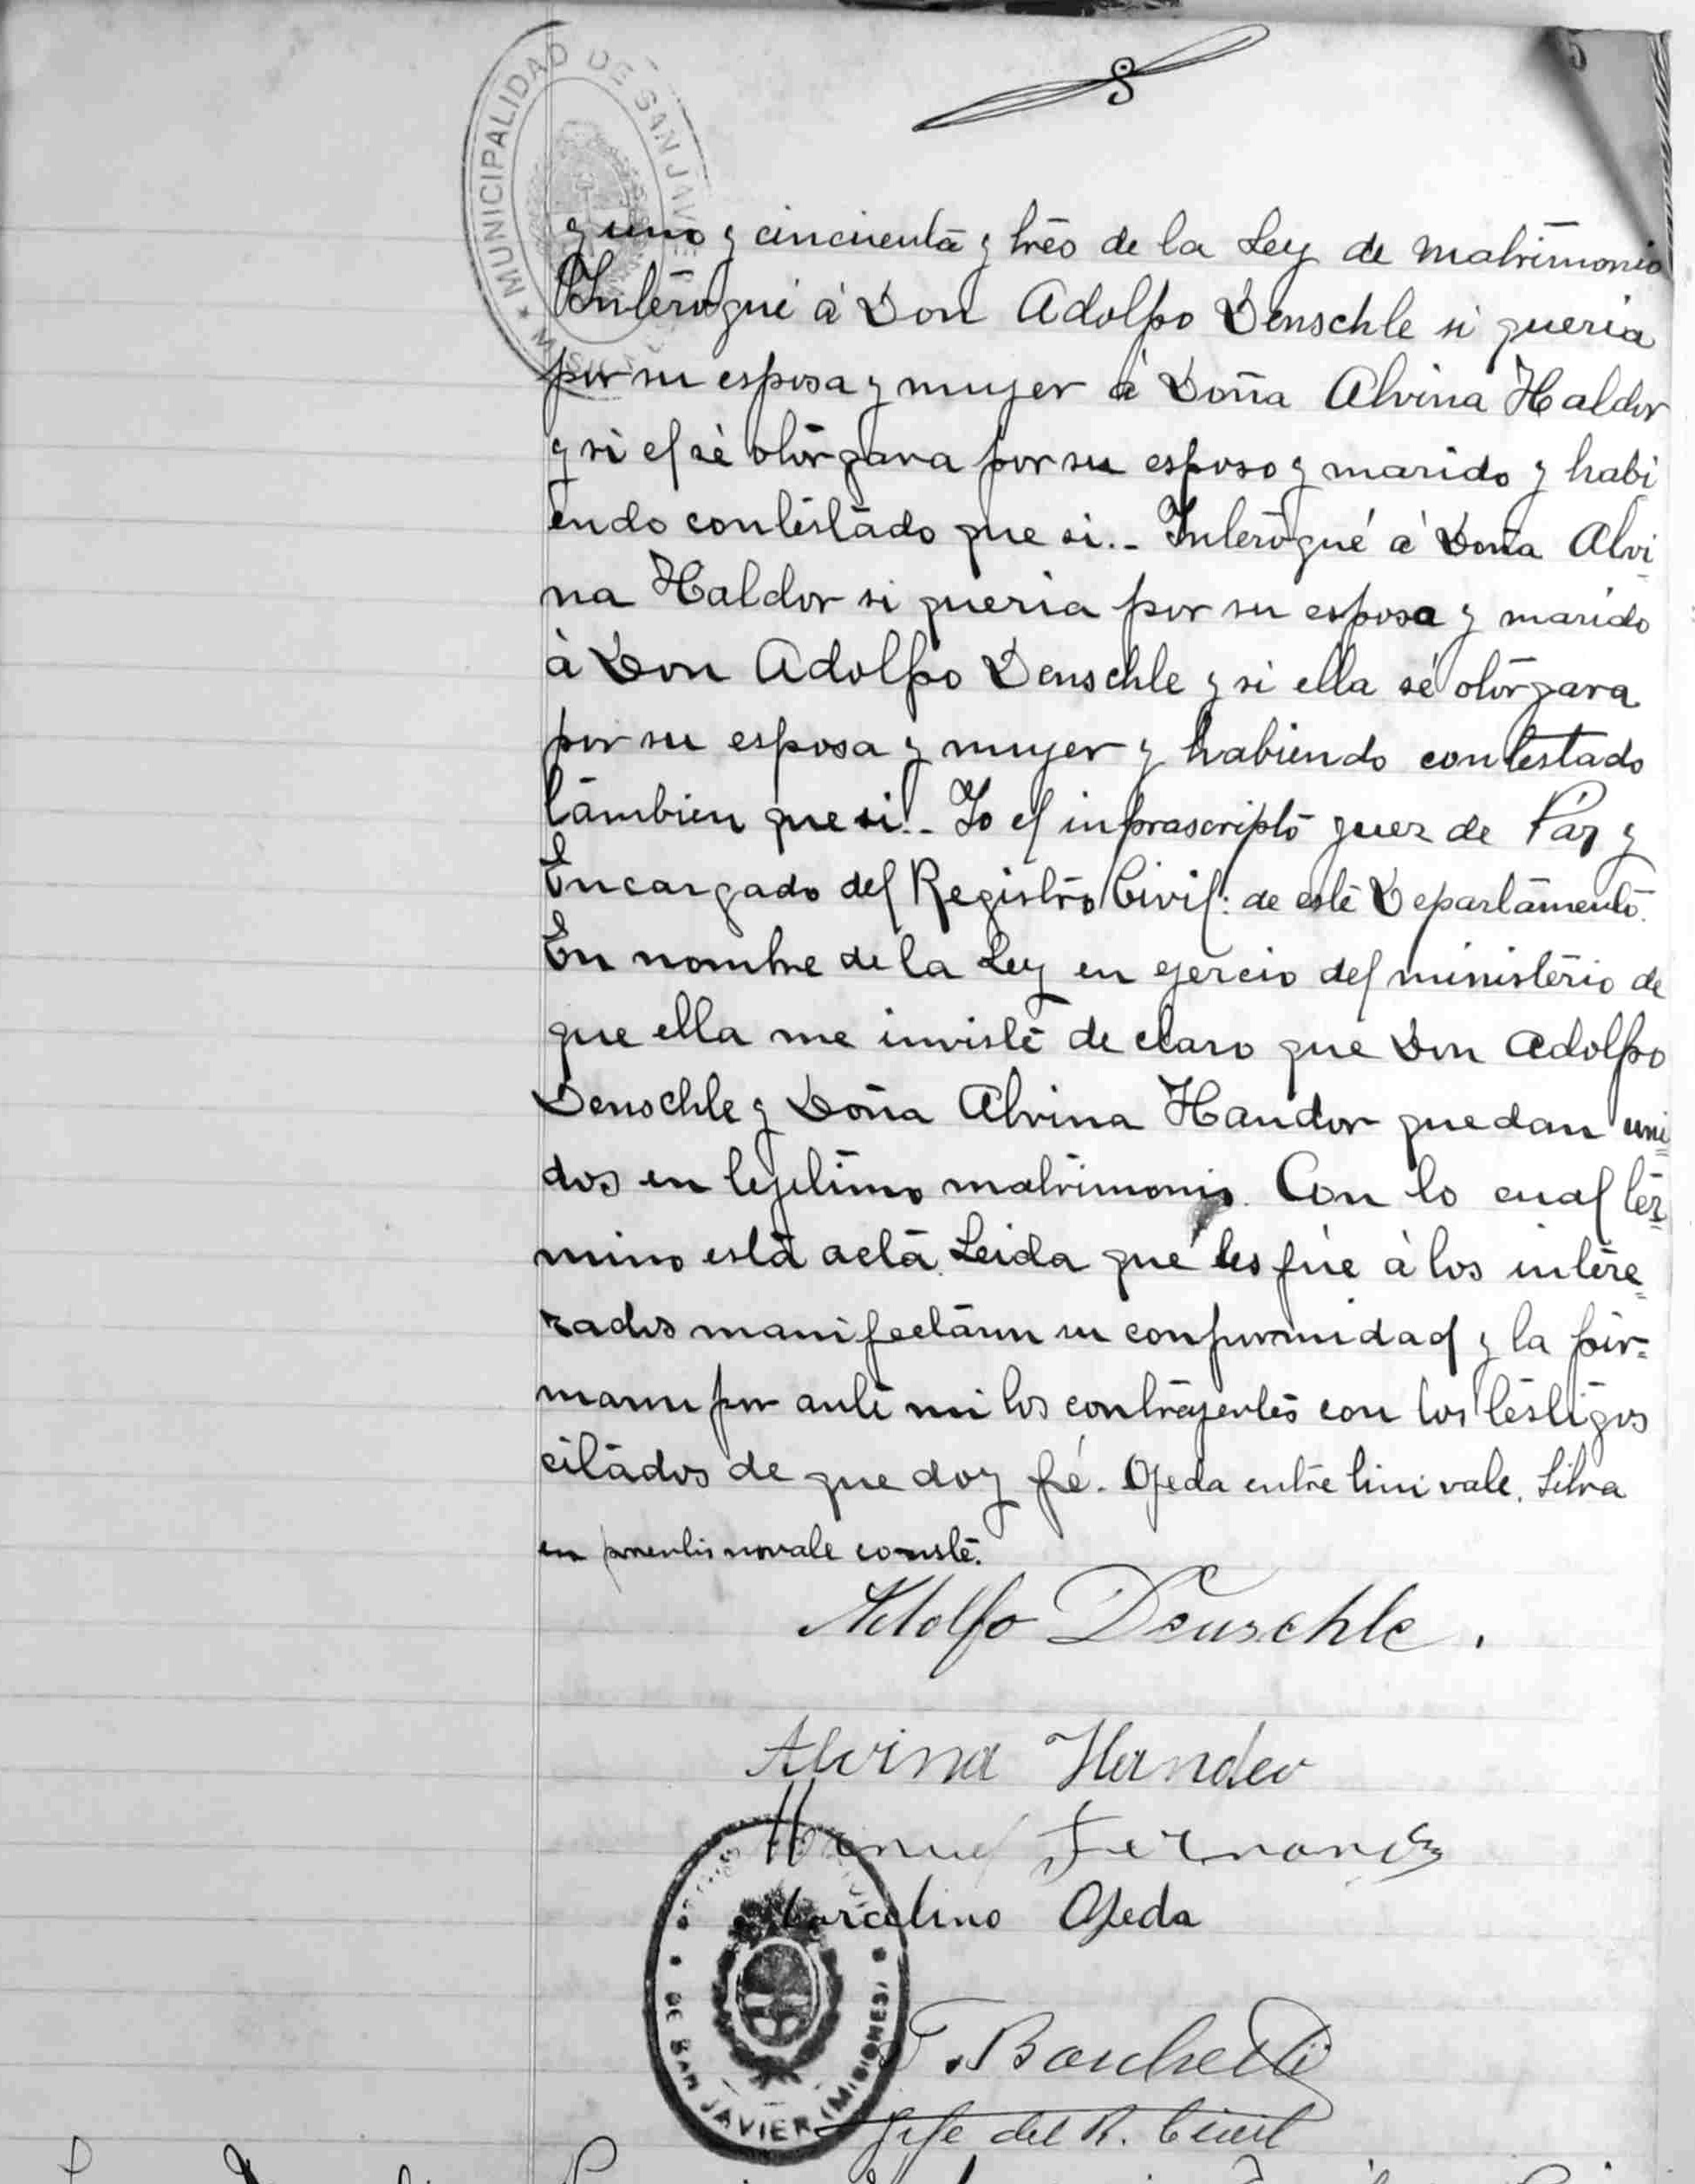 MUNICIPALIDAD DE SAN JAVIER
y uno y cincuenta y tres de la Ley de matrimonio
Interogué á Don Adolfo Denschle si queria
por su esposa y mujer á Doña Alvina Haldor
y si el sé otorgara por su esposo y marido y habi
endo contestado que si.- Interogué á Doña Alvi
na Haldor si queria por su esposa y marido
à Don Adolfo Denschle y si ella sé otorgara
por su esposa y mujer y habiendo contestado
tambien que si.- Yo el infrascripto juez de Páz y
Encargado del Registro Civil: de este Departamento.
En nombre de la Ley en ejercio del ministerio de
que ella me inviste de claro que Don Adolfo
Denschle y Doña Alvina Handor quedan uni=
dos en lejetimo matrimonio. Con lo cual ter=
mino esta acta. Leida que les fúe à los intere=
zados manifestaron su conformidad y la fir=
maron por ante mi los contrayentes con los testigos
citados de que doy fé. Ojeda entre lini vale. Silva
en parentis no vale conste.
Adolfo Deuschle.
Alvina Hander
Manuel Fernandez
Marcelino Ojeda
DE SAN JAVIER (MISIONES)
Borchetti
Jefe del R. Civil